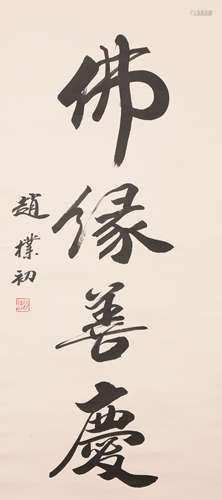 佛緣善慶
趙樸初